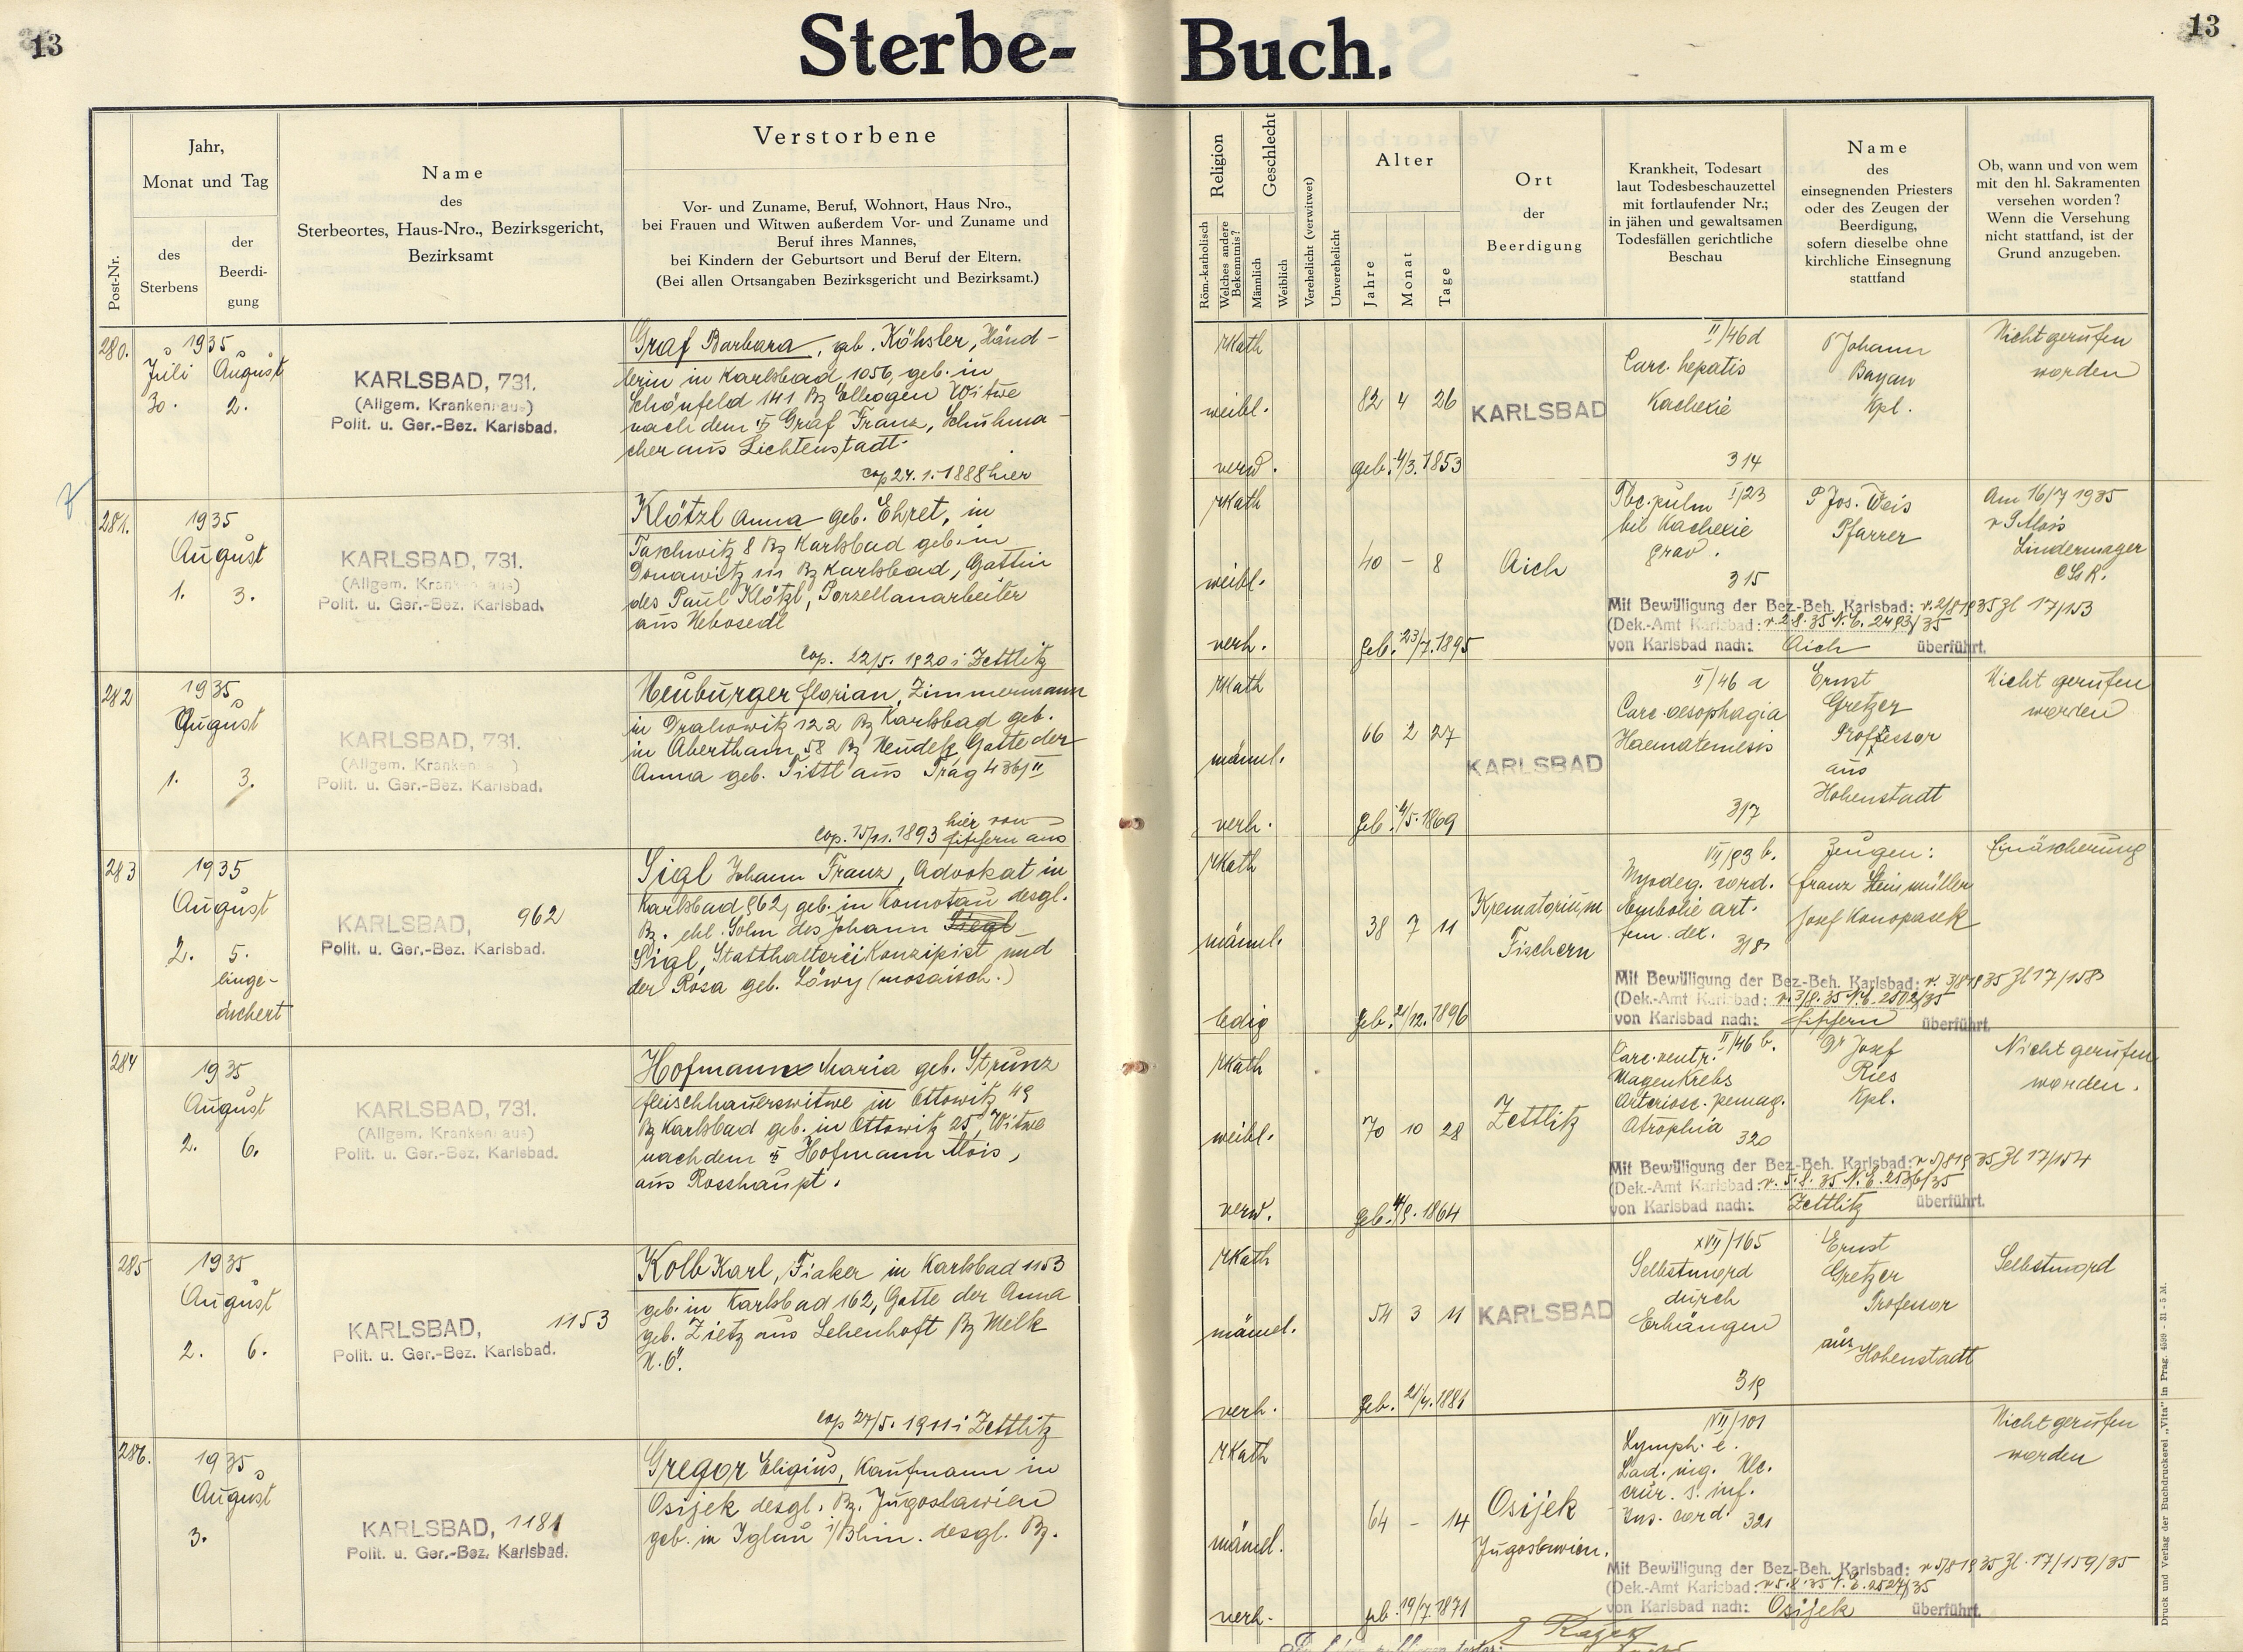 13
Sterbe-
Buch.
13
Post-Nr.
Jahr,
Monat und Tag
des
Sterbens
der
Beerdi-
gung
Name
des
Sterbeortes, Haus-Nro., Bezirksgericht,
Bezirksamt
Verstorbene
Vor- und Zuname, Beruf, Wohnort, Haus Nro.,
bei Frauen und Witwen außerdem Vor- und Zuname und
Beruf ihres Mannes,
bei Kindern der Geburtsort und Beruf der Eltern.
(Bei allen Ortsangaben Bezirksgericht und Bezirksamt.)
Religion
Röm.-katholisch
Welches andere
Bekenntnis?
Geschlecht
Männlich
Weiblich
Verehelicht (verwitwet)
Unverehelicht
Alter
Jahre
Monat
Tage
Ort
der
Beerdigung
Krankheit, Todesart
laut Todesbeschauzettel
mit fortlaufender Nr.;
in jähen und gewaltsamen
Todesfällen gerichtliche
Beschau
Name
des
einsegnenden Priesters
oder des Zeugen der
Beerdigung,
sofern dieselbe ohne
kirchliche Einsegnung
stattfand
Ob, wann und von wem
mit den hl. Sakramenten
versehen worden?
Wenn die Versehung
nicht stattfand, ist der
Grund anzugeben.
280.
1935
Juli August
30. 2.
KARLSBAD, 731.
(Allgem. Krankenhaus)
Polit. u. Ger.-Bez. Karlsbad.
Graf Barbara, geb. Köhsler, Händ-
lerin in Karlsbad 1056, geb. in
Schönfeld 141 Bz Elbogen Witwe
nach dem † Graf Franz, Schuhma-
cher aus Lichtenstadt.
cop 24.1.1888 hier
RKath
weibl.
verw.
82 4 26
geb. 4/3. 1853
KARLSBAD
II/46d
Carc. hepatis
Kachexie
314
P Johann
Bayan
Kpl.
Nicht gerufen
worden
281.
1935
August
1. 3.
KARLSBAD, 731.
(Allgem. Krankenhaus)
Polit. u. Ger.-Bez. Karlsbad.
Klötzl Anna geb. Ehret, in
Taschwitz 8 Bz Karlsbad geb. in
Donawitz 111 Bz Karlsbad, Gattin
des Paul Klötzl, Porzellanarbeiter
aus Nebosedl
Cop. 22/5. 1920 i Zettlitz
RKath
weibl.
verh.
40 - 8
geb. 23/7. 1895
Aich
Tbc. pulm I/23
bil Kachexie
grav.
315
P Jos. Weis
Pfarrer
Am 16/7 1935
v P Alois
Lindermayer
CSsR.
Mit Bewilligung der Bez-Beh. Karlsbad: v. 2/8 1935 Zl 17/153
(Dek.-Amt Karlsbad: v. 2.8.35 N.E. 2493/35
von Karlsbad nach: Aich überführt.
282
1935
August
1. 3.
KARLSBAD, 731.
(Allgem. Krankenhaus)
Polit. u. Ger.-Bez. Karlsbad.
Neuburger Florian, Zimmermann
in Drahowitz 122 Bz Karlsbad geb.
in Abertham, 58 Bz Neudek Gatte der
Anna geb. Tittl aus Prag 436/II
Cop. 15/11. 1893 hier von
Fischern aus
RKath
männl.
verh.
66 2 27
geb. 4/5. 1869
KARLSBAD
II/46 a
Carc. oesophagia
Haematemesis
317
Ernst
Gretzer
Professor
aus
Hohenstadt
Nicht gerufen
worden
283
1935
August
2. 5.
einge-
äschert
KARLSBAD, 962
Polit. u. Ger.-Bez. Karlsbad.
Sigl Johann Franz, Advokat in
Karlsbad 962, geb. in Komotau desgl.
Bz. ehl. Sohn des Johann Siegl
Sigl, Statthalterei Konzipist und
der Rosa geb. Löwy (mosaisch.)
RKath
männl.
ledig
38 7 11
geb. 21/12. 1896
Krematorium
Fischern
VII/93 b.
Myodeg. cord.
Embolie art.
fem. dex. 318
Zeugen:
Franz Steinmüller
Josef Konopasek
Einäscherung
Mit Bewilligung der Bez-Beh. Karlsbad: v. 3/8 1935 Zl 17/158
(Dek.-Amt Karlsbad: v. 3/8. 35 N.E. 2502/35
von Karlsbad nach: Fischern überführt.
284
1935
August
2. 6.
KARLSBAD, 731.
(Allgem. Krankenhaus)
Polit. u. Ger.-Bez. Karlsbad.
Hofmann Maria geb. Strunz
Fleischhauerswitwe in Ottowitz 49
Bz Karlsbad geb. in Ottowitz 25, Witwe
nach dem † Hofmann Alois,
aus Rosshaupt.
RKath
weibl.
verw.
70 10 28
geb. 4/9. 1864
Zettlitz
II/46 b.
Carc. ventr.
Magenkrebs
Arteriosc. permag.
Atrophia
320
Dr Josef
Ries
Kpl.
Nicht gerufen
worden.
Mit Bewilligung der Bez-Beh. Karlsbad: v 5/8 1935 Zl 17/154
(Dek.-Amt Karlsbad: v. 5.8.35 N.E. 2536/35
von Karlsbad nach: Zettlitz überführt.
285
1935
August
2. 6.
KARLSBAD, 1153
Polit. u. Ger.-Bez. Karlsbad.
Kolb Karl, Fiaker in Karlsbad 1153
geb. in Karlsbad 162, Gatte der Anna
geb. Zietz aus Lehenhoft Bz Melk
N.Ö.
cop 27/5. 1911 i Zettlitz
RKath
männl.
verh.
54 3 11
geb. 21/4. 1881
KARLSBAD
XVII/165
Selbstmord
durch
Erhängen
319
Ernst
Gretzer
Professor
aus
Hohenstadt
Selbstmord
286.
1935
August
3.
KARLSBAD, 1181
Polit. u. Ger.-Bez. Karlsbad.
Gregor Eligius, Kaufmann in
Osijek desgl. Bz. Jugoslawien
geb. in Iglau i/Bhm. desgl. Bz.
RKath
männl.
verh.
64 - 14
geb. 19/7. 1871
Osijek
Jugoslawien.
VII/101
Lymph. e.
Lad. nig. Ulc.
crur. s. inf.
Ins. cord. 321
Nicht gerufen
worden
Mit Bewilligung der Bez-Beh. Karlsbad: v 5/8 1935 Zl. 17/159/35
(Dek.-Amt Karlsbad: v 5.8.35 N.E. 2527/35
von Karlsbad nach: Osijek überführt.
Druck und Verlag der Buchdruckerei „Vita" in Prag. 4599 - 31 - 5 M.